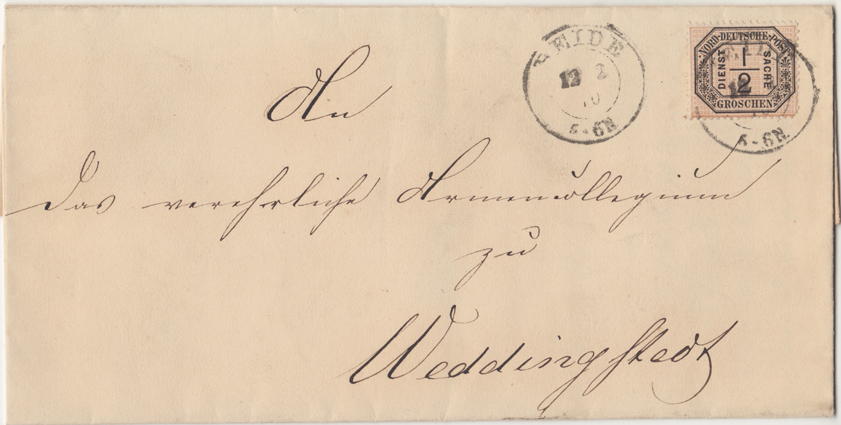 HEIDE
12 2
70
5-6N
NORD-DEUTSCHE-POST
DIENST SACHE
1/2
GROSCHEN
An
das verehrliche Armencollegium
zu
Weddingstedt